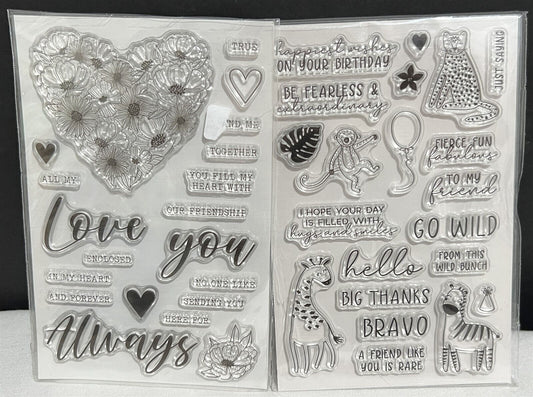 TRUE
ND ME
TOGETHER
ALL MY
YOU FILL MY
HEART WITH
OUR FRIENDSHIP
Love you
ENCLOSED
IN MY HEART
NO ONE LIKE
AND FOREVER
SENDING YOU
HERE FOR
Always
happiest wishes
ON YOUR BIRTHDAY
JUST SAYING
BE FEARLESS &
extraordinary
FIERCE FUN
fabulous
TO MY
friend
I HOPE YOUR DAY
IS FILLED WITH
hugs and smiles
GO WILD
hello
FROM THIS
WILD BUNCH
BIG THANKS
BRAVO
A FRIEND LIKE
YOU IS RARE